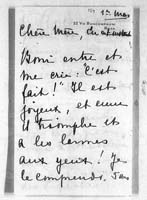 1er Mars
Chère Mère,
Bomi entre et
me crie: "C'est
fait!" Il est
joyeux, et
il triomphe et
a les larmes
aux yeux! Je
le comprends.